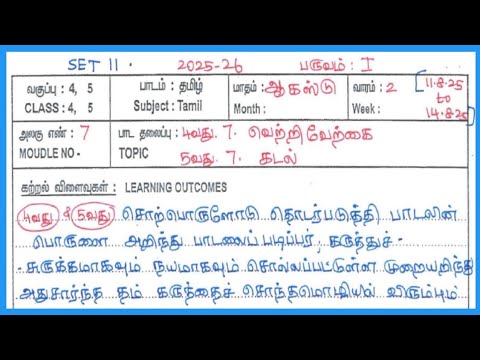 SET 11. 2025-26 பருவம்: I
வகுப்பு: 4, 5 பாடம்: தமிழ் மாதம்: ஆகஸ்டு வாரம்: 2 11.8.25
CLASS: 4, 5 Subject: Tamil Month: Week: to 14.8.25
அலகு எண்: 7 பாட தலைப்பு: 4வது. 7. வெற்றி வேற்கை
MOUDLE NO- TOPIC 5வது. 7. கடல்
கற்றல் விளைவுகள்: LEARNING OUTCOMES
4வது & 5வது சொற்பொருளோடு தொடர்படுத்தி பாடலின்
பொருளை அறிந்து பாடலைப் படிப்பர், கருத்துச் -
- சுருக்கமாகவும் நயமாகவும் சொல்லப்பட்டுள்ள முறையறிந்து
அதுசார்ந்த தம் கருத்தைச் சொந்தமொழியில் விரும்பும்